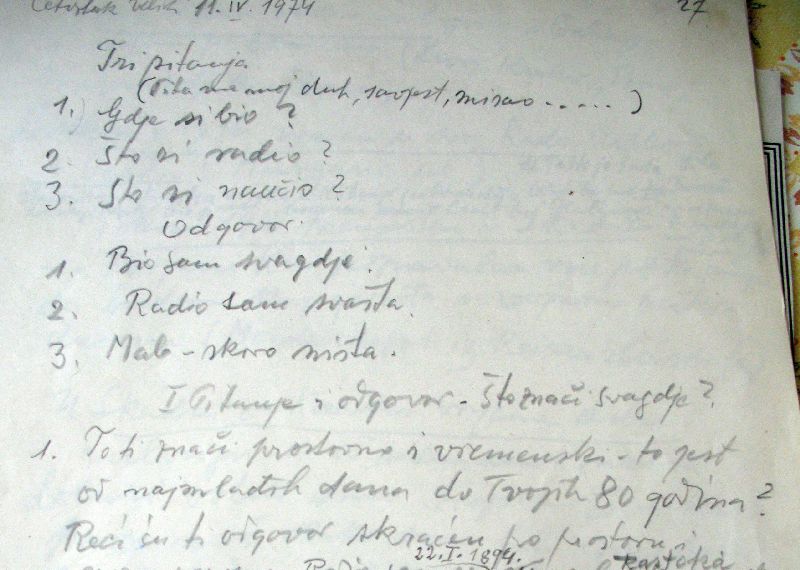 Četvrtak Velik 11. IV. 1974 27
Tri pitanja
(Pita me moj duh, savjest, misao ......)
1.) Gdje si bio?
2. Što si radio?
3. Što si naučio?
Odgovor.
1. Bio sam svagdje.
2. Radio sam svašta.
3. Malo - skoro ništa.
I Pitanje i odgovor - Što znači svagdje?
1. To ti znači prostorno i vremenski - to jest
od najmlađih dana do Tvojih 80 godina?
Reći ću ti odgovor skraćen po prostoru i
22. I. 1894.